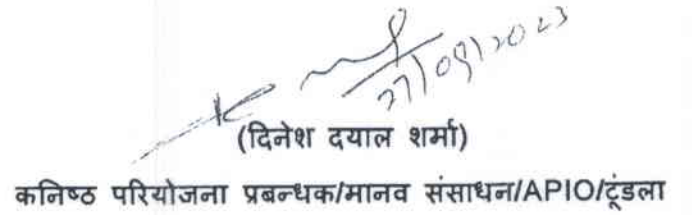 27/09/2023
(दिनेश दयाल शर्मा)
कनिष्ठ परियोजना प्रबन्धक/मानव संसाधन/APIO/टूंडला